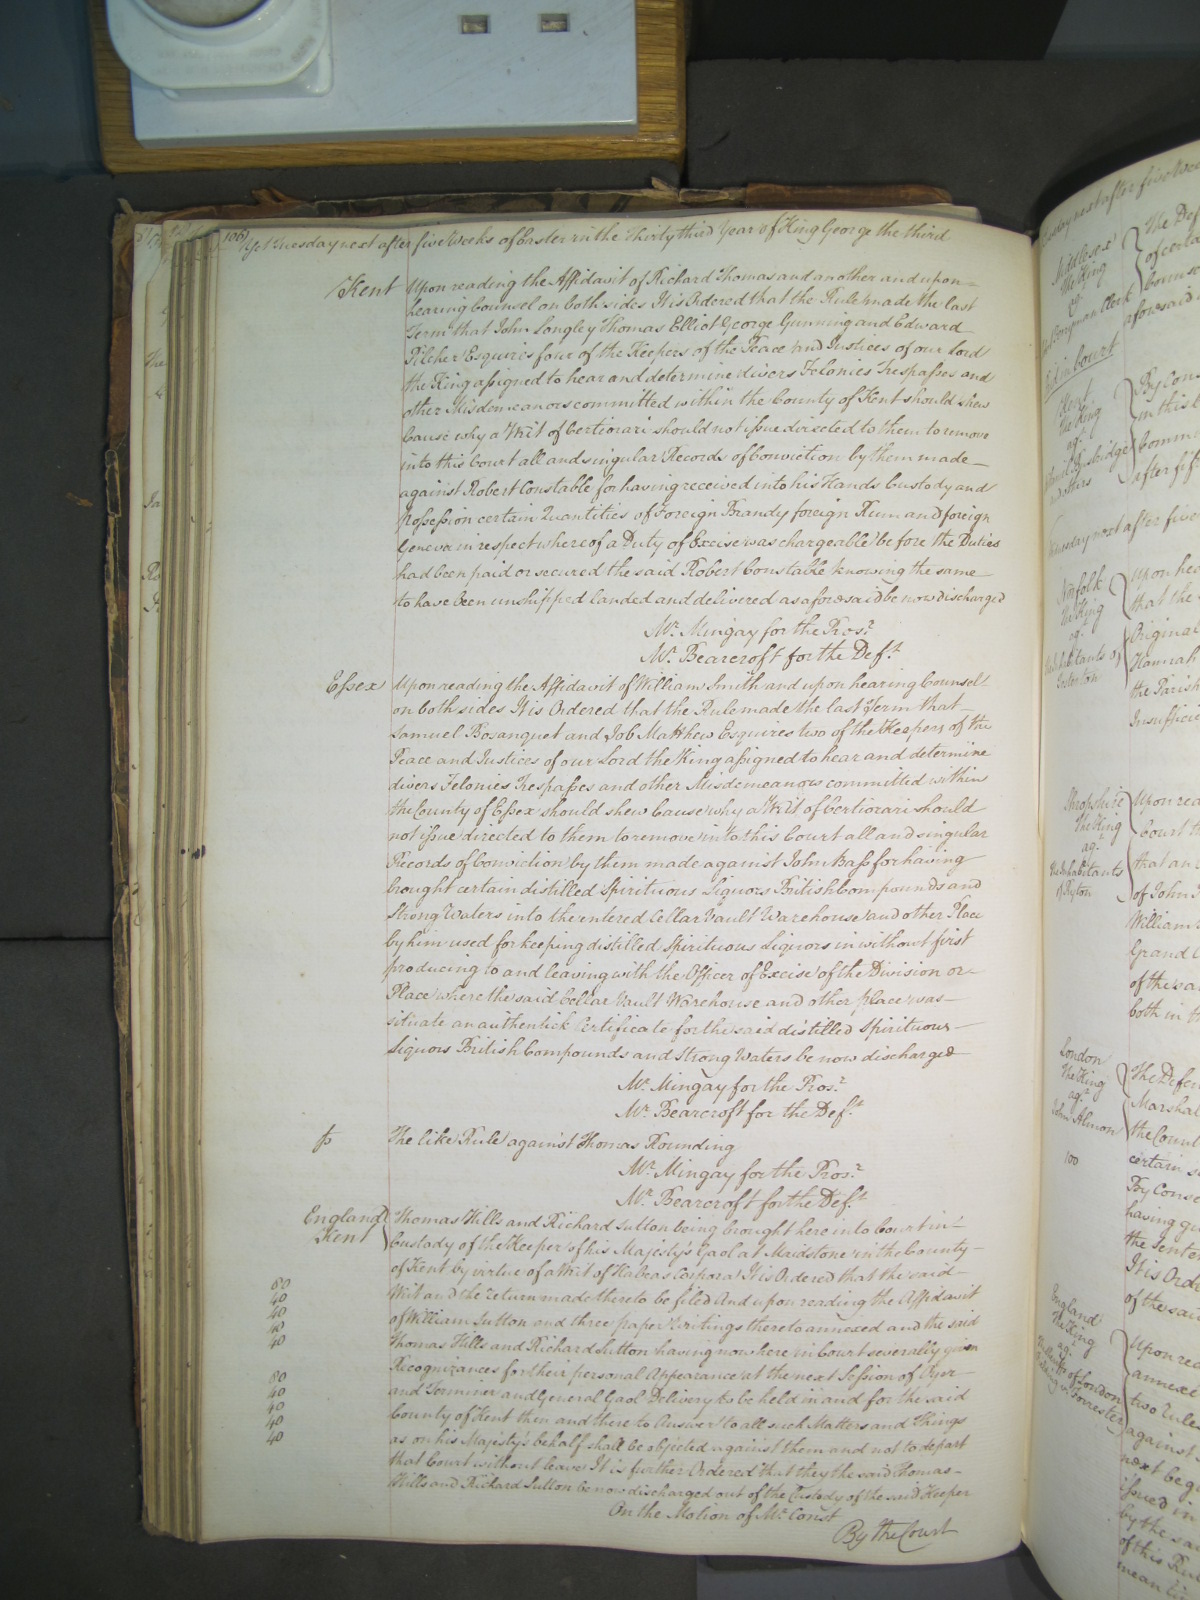 106 Yet Tuesday next after five Weeks of Easter in the Thirty third Year of King George the third
Kent Upon reading the Affidavit of Richard Thomas and another and upon
hearing Counsel on both sides It is Ordered that the Rule made the last
Term that John Longley Thomas Elliot George Gunning and Edward
Pilcher Esquires four of the Keepers of the Peace and Justices of our Lord
the King assigned to hear and determine divers Felonies Trespasses and
other Misdemeanors committed within the County of Kent should shew
Cause why a Writ of Certiorari should not issue directed to them to remove
into this Court all and singular Records of Conviction by them made
against Robert Constable for having received into his Hands Custody and
Possession certain Quantities of Foreign Brandy foreign Rum and foreign
Geneva in respect whereof a Duty of Excise was chargeable before the Duties
had been paid or secured the said Robert Constable knowing the same
to have been unshipped landed and delivered as aforesaid be now discharged
Mr. Mingay for the Prosr.
Mr. Bearcroft for the Deft.
Essex Upon reading the Affidavit of William Smith and upon hearing Counsel
on both sides It is Ordered that the Rule made the last Term that
Samuel Bosanquet and Job Matthew Esquires two of the Keepers of the
Peace and Justices of our Lord the King assigned to hear and determine
divers Felonies Trespasses and other Misdemeanors committed within
the County of Essex should shew Cause why a Writ of Certiorari should
not issue directed to them to remove into this Court all and singular
Records of Conviction by them made against John Bass for having
brought certain distilled Spirituous Liquors British Compounds and
Strong Waters into the entered Cellar Vault Warehouse and other Place
by him used for keeping distilled Spirituous Liquors in without first
producing to and leaving with the Officer of Excise of the Division or
Place where the said Cellar Vault Warehouse and other place was
situate an authentick Certificate for the said distilled Spirituous
Liquors British Compounds and Strong Waters be now discharged
Mr. Mingay for the Prosr.
Mr. Bearcroft for the Deft.
The like Rule against Thomas Rounding
Mr. Mingay for the Prosr.
Mr. Bearcroft for the Deft.
England Thomas Hills and Richard Sutton being brought here into Court in
Kent Custody of the Keeper of his Majesty's Gaol at Maidstone in the County
of Kent by virtue of a Writ of Habeas Corpora It is Ordered that the said
80 Writ and the return made thereto be filed And upon reading the Affidavit
40 of William Sutton and three paper Writings thereto annexed and the said
40
40
40 Thomas Hills and Richard Sutton having now here in Court severally given
Recognizances for their personal Appearance at the next Session of Oyer
80 and Terminer and General Gaol Delivery to be held in and for the said
40 County of Kent then and there to Answer to all such Matters and Things
40
40
40 as on his Majesty's behalf shall be objected against them and not to depart
that Court without leave It is further Ordered that they the said Thomas
Hills and Richard Sutton be now discharged out of the Custody of the said Keeper
On the Motion of Mr. Const
By the Court
Middlesex
The King
agt.
The Def
of certa
in Court
Kent
The King
agt.
By Con
in this
after fif
Norfolk
The King
agt.
Upon hea
that the
Original
Hannah
the Parish
Insufficie
Shropshire
The King
agt.
The Inhabitants
of Ryton
Upon rea
Court th
that an
of John
William
Grand
of the sa
both in th
London
The King
agt.
John Almon
100
The Defen
Marshal
the Count
certain
By Conse
having
the senten
It is Orde
of the sai
England
The King
agt.
Upon rea
annexe
two Rules
against
next
issued in
by the sa
of this Rul
mean